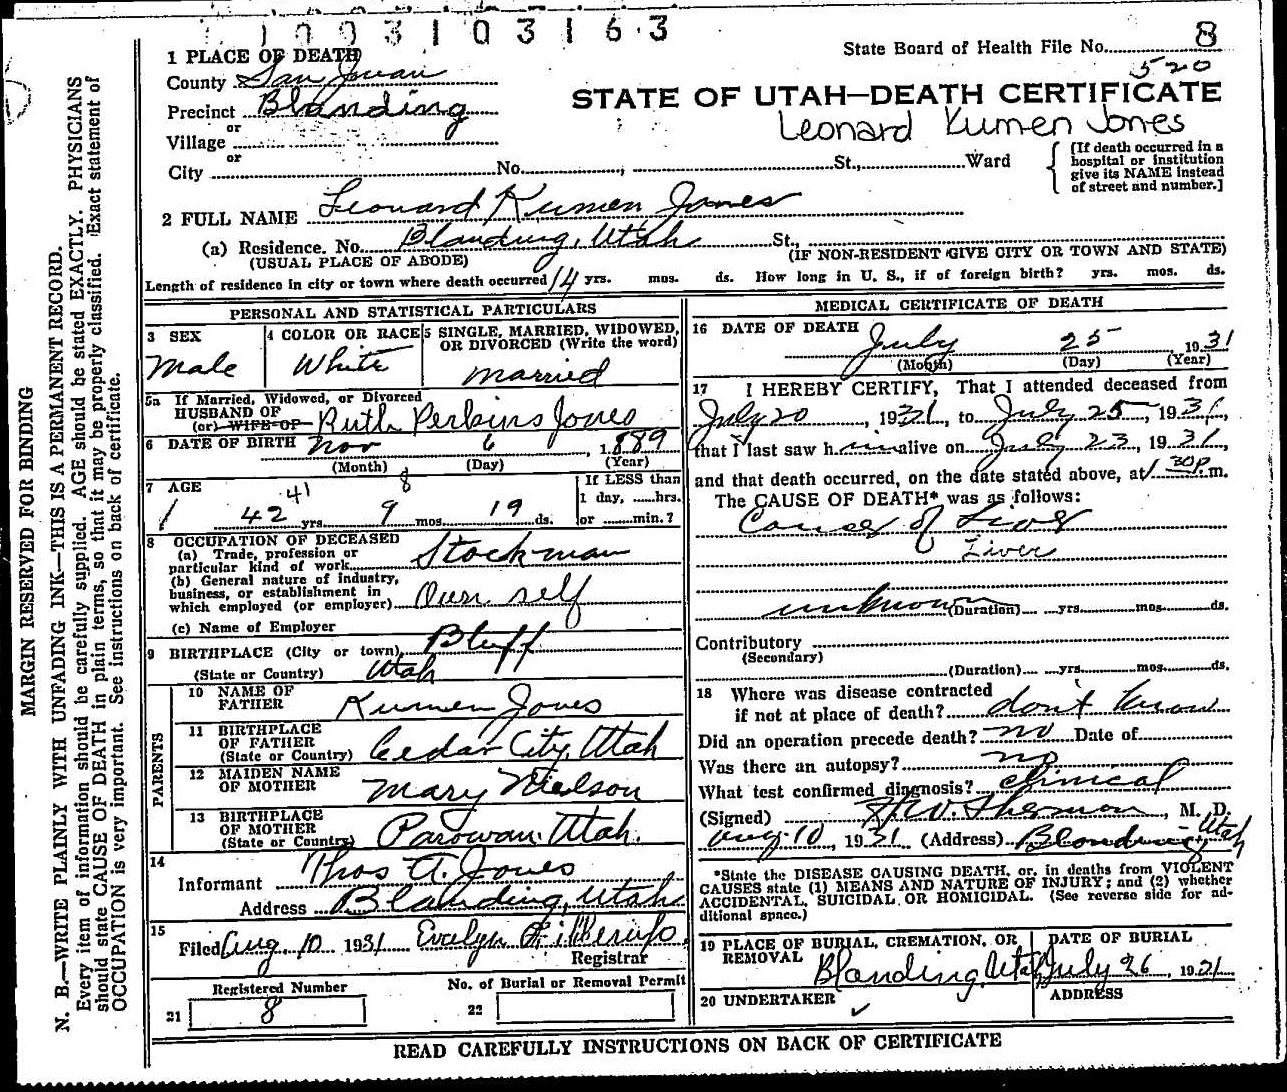 1003103163
State Board of Health File No. 8
520
1 PLACE OF DEATH
County San Juan
Precinct Blanding
or
Village
or
City No. St., Ward
STATE OF UTAH—DEATH CERTIFICATE
Leonard Kumen Jones
[If death occurred in a hospital or institution give its NAME instead of street and number.]
2 FULL NAME Leonard Kumen Jones
(a) Residence. No. Blanding, Utah St.,
(USUAL PLACE OF ABODE) (IF NON-RESIDENT GIVE CITY OR TOWN AND STATE)
Length of residence in city or town where death occurred 14 yrs. mos. ds. How long in U. S., if of foreign birth? yrs. mos. ds.
PERSONAL AND STATISTICAL PARTICULARS
3 SEX
Male
4 COLOR OR RACE
White
5 SINGLE, MARRIED, WIDOWED, OR DIVORCED (Write the word)
Married
5a If Married, Widowed, or Divorced
HUSBAND OF
(or) WIFE OF Ruth Perkins Jones
6 DATE OF BIRTH Nov 6, 1889
(Month) (Day) (Year)
7 AGE
41 8
42 yrs. 9 mos. 19 ds.
If LESS than
1 day, hrs.
or min.?
8 OCCUPATION OF DECEASED
(a) Trade, profession or
particular kind of work Stockman
(b) General nature of industry,
business, or establishment in
which employed (or employer) Own self
(c) Name of Employer
9 BIRTHPLACE (City or town) Bluff
(State or Country) Utah
PARENTS
10 NAME OF
FATHER Kumen Jones
11 BIRTHPLACE
OF FATHER
(State or Country) Cedar City, Utah
12 MAIDEN NAME
OF MOTHER Mary Nielson
13 BIRTHPLACE
OF MOTHER
(State or Country) Parowan, Utah.
14
Informant Thos A. Jones
Address Blanding, Utah
15
Filed Aug 10 1931 Evelyn
Registrar
Registered Number
21 8
No. of Burial or Removal Permit
22
MEDICAL CERTIFICATE OF DEATH
16 DATE OF DEATH
July 25 1931
(Month) (Day) (Year)
17 I HEREBY CERTIFY, That I attended deceased from
July 20, 1931, to July 25, 1931,
that I last saw him alive on July 23, 1931
and that death occurred, on the date stated above, at 1 30p m.
The CAUSE OF DEATH* was as follows:
Cancer of Liver
Liver
unknown (Duration) yrs. mos. ds.
Contributory
(Secondary)
(Duration) yrs. mos. ds.
18 Where was disease contracted
if not at place of death? don't know
Did an operation precede death? no Date of
Was there an autopsy? no
What test confirmed diagnosis? clinical
(Signed) H. W. Sherman, M. D.
Aug 10, 1931 (Address) Blanding Utah
*State the DISEASE CAUSING DEATH, or, in deaths from VIOLENT
CAUSES state (1) MEANS AND NATURE OF INJURY; and (2) whether
ACCIDENTAL, SUICIDAL OR HOMICIDAL. (See reverse side for ad-
ditional space.)
19 PLACE OF BURIAL, CREMATION, OR
REMOVAL Blanding, Utah
DATE OF BURIAL
July 26, 1931
20 UNDERTAKER ✓
ADDRESS
READ CAREFULLY INSTRUCTIONS ON BACK OF CERTIFICATE
MARGIN RESERVED FOR BINDING
N. B.—WRITE PLAINLY WITH UNFADING INK—THIS IS A PERMANENT RECORD.
Every item of information should be carefully supplied. AGE should be stated EXACTLY. PHYSICIANS
should state CAUSE OF DEATH in plain terms, so that it may be properly classified. Exact statement of
OCCUPATION is very important. See instructions on back of certificate.